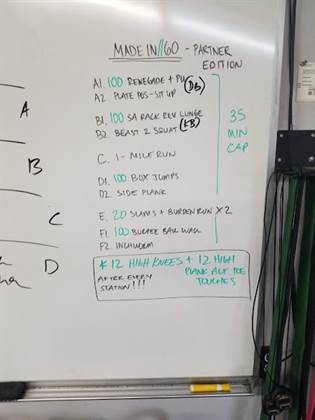 MADE IN//60 - PARTNER
EDITION
A1. 100 RENEGADE + PU (DB)
A2. PLATE POS-SIT UP
B1. 100 SA RACK REV LUNGE
B2. BEAST 2 SQUAT (KB)
C. 1-MILE RUN
D1. 100 BOX JUMPS
D2. SIDE PLANK
35
MIN
CAP
E. 20 SLAMS + BURDEN RUN X 2
F1. 100 BURPEE BALL WALL
F2. INCHWORM
* 12 HIGH KNEES + 12 HIGH
PLANK ALT TOE
TOUCHES
AFTER EVERY
STATION!!!
A
B
C
D